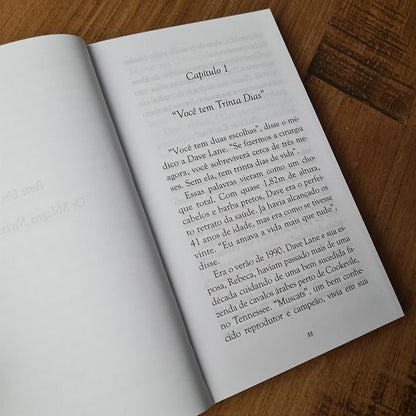 Capítulo 1
“Você tem Trinta Dias”
“Você tem duas escolhas”, disse o mé-
dico a Dave Lane. “Se fizermos a cirurgia
agora, você sobreviverá cerca de três me-
ses. Sem ela, tem trinta dias de vida”.
Essas palavras vieram como um cho-
que total. Com quase 1,82m de altura,
cabelos e barba pretos, Dave era o perfei-
to retrato da saúde. Já havia alcançado os
41 anos de idade, mas era como se tivesse
vinte. “Eu amava a vida mais que tudo”,
disse.
Era o verão de 1990. Dave Lane e sua es-
posa, Rebeca, haviam passado mais de uma
década cuidando de uma bem sucedida fa-
zenda de cavalos árabes perto de Cookevile,
no Tennessee. “Muscats”, um bem conhe-
cido reprodutor e campeão, vivia em sua
11